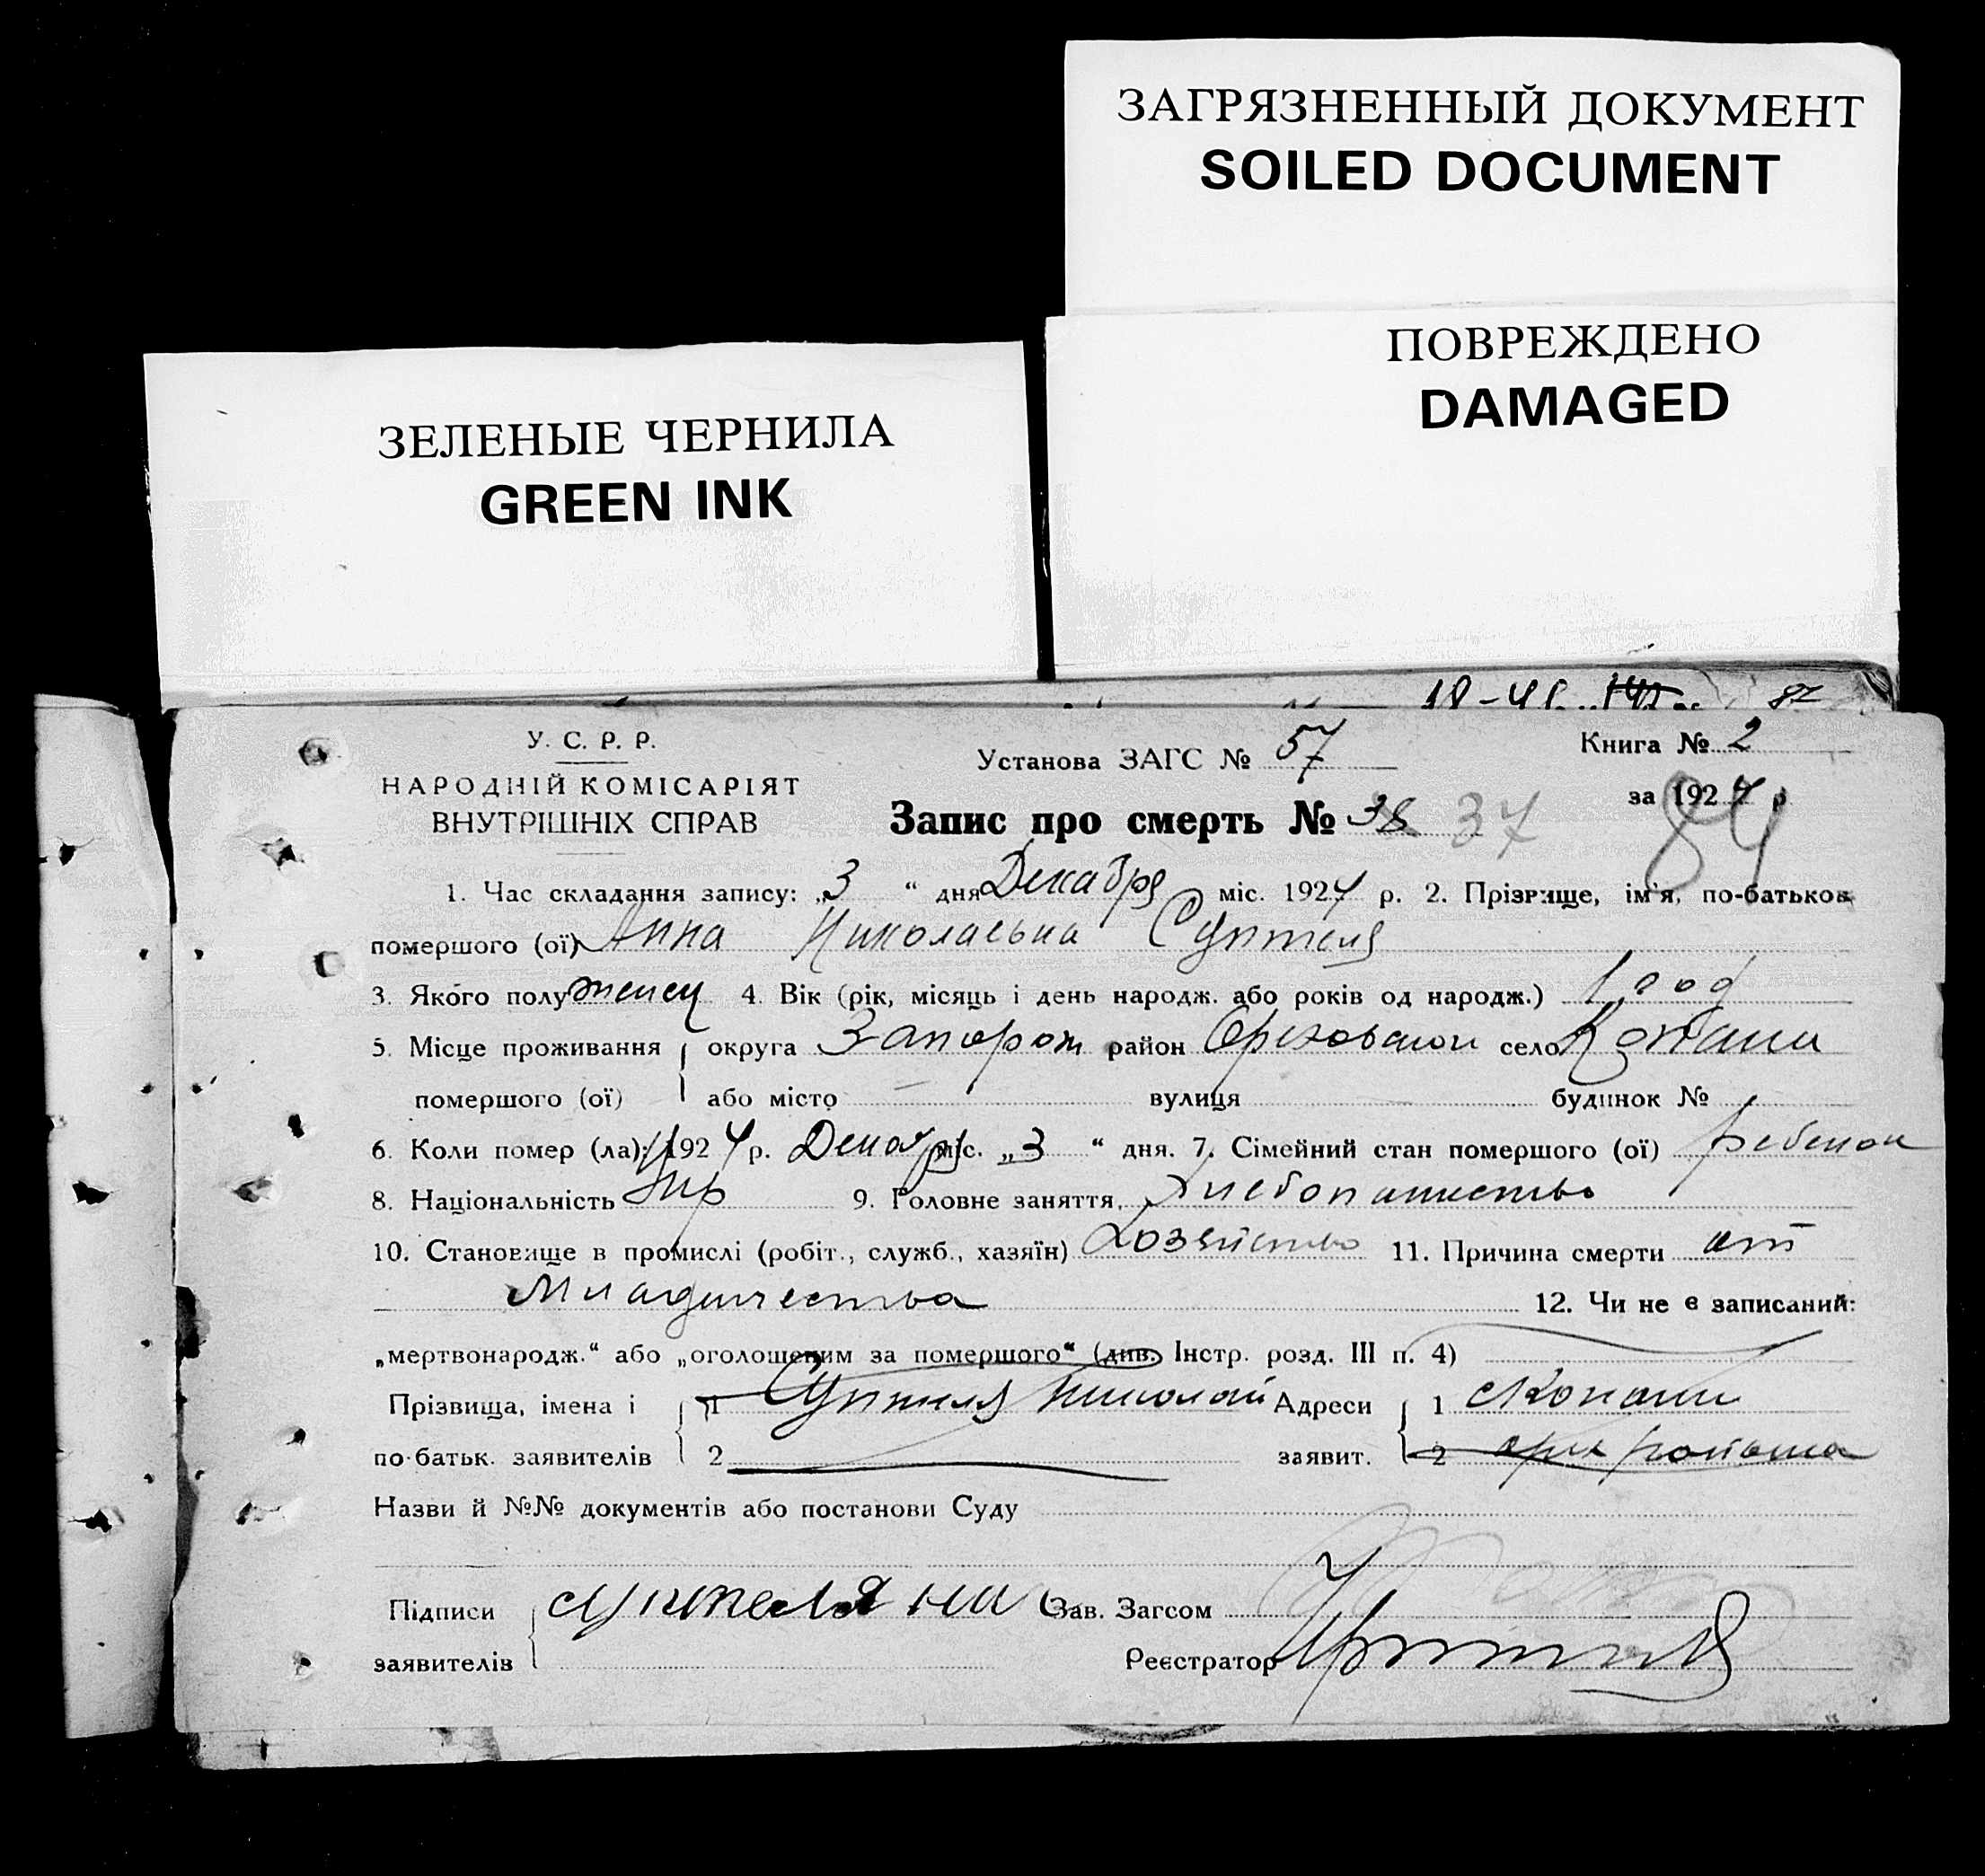 ЗАГРЯЗНЕННЫЙ ДОКУМЕНТ
SOILED DOCUMENT
ПОВРЕЖДЕНО
DAMAGED
ЗЕЛЕНЫЕ ЧЕРНИЛА
GREEN INK
87
У. С. Р. Р.
НАРОДНІЙ КОМІСАРІЯТ
ВНУТРІШНІХ СПРАВ
Установа ЗАГС № 57
Книга № 2
за 1924 р
Запис про смерть № 38 37 84
1. Час складання запису: „3 “ дня Декабря міс. 1924 р. 2. Прізвище, ім'я, по-батькові
помершого (ої) Анна Николаевна
3. Якого полу женск 4. Вік (рік, місяць і день народж. або років од народж.) 1 год
5. Місце проживання округа Запорож район Ореховской село Копани
помершого (ої) або місто — вулиця будинок №
6. Коли помер (ла): 1924 р. Декабря міс. „3 “ дня. 7. Сімейний стан помершого (ої) ребенок
8. Національність Укр 9. Головне заняття, Хлебопашество
10. Становище в промислі (робіт., служб., хазяїн) Хозяйство 11. Причина смерти от
Младенчества 12. Чи не є записаний:
„мертвонародж.“ або „оголошеним за помершого“ (див. Інстр. розд. III п. 4)
Прізвища, імена і 1 Николай Адреси 1 с Копани
по-батьк. заявителів 2 заявит. 2 Орех района
Назви й №№ документів або постанови Суду
Підписи Зав. Загсом
заявителів Реєстратор